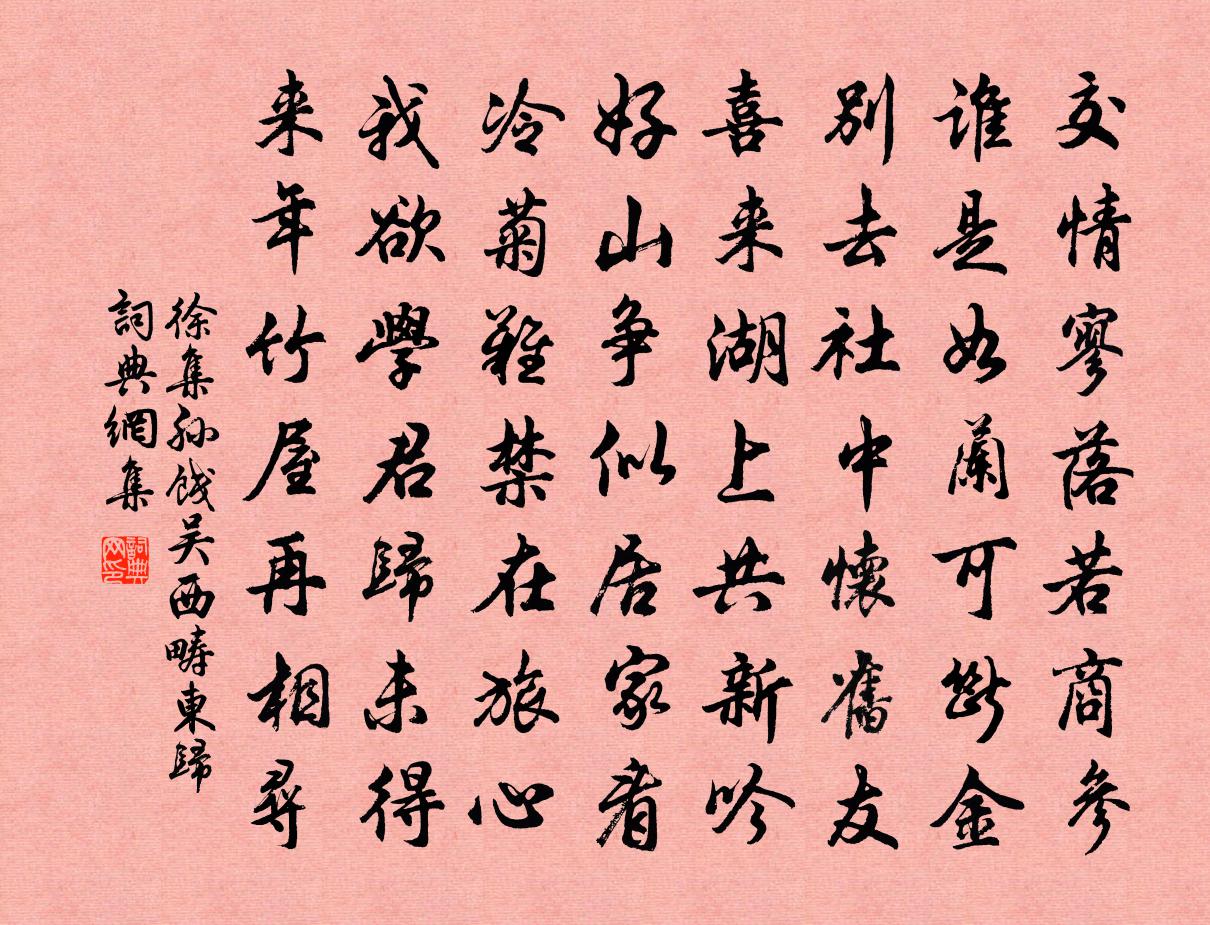 交情寥落若商參
誰是如蘭可斷金
別去社中懷舊友
喜来湖上共新吟
好山争似居家看
冷菊難禁在旅心
我欲學君歸未得
来年竹屋再相尋
徐集孙餞吴西疇東歸
詞典網集
詞典网印